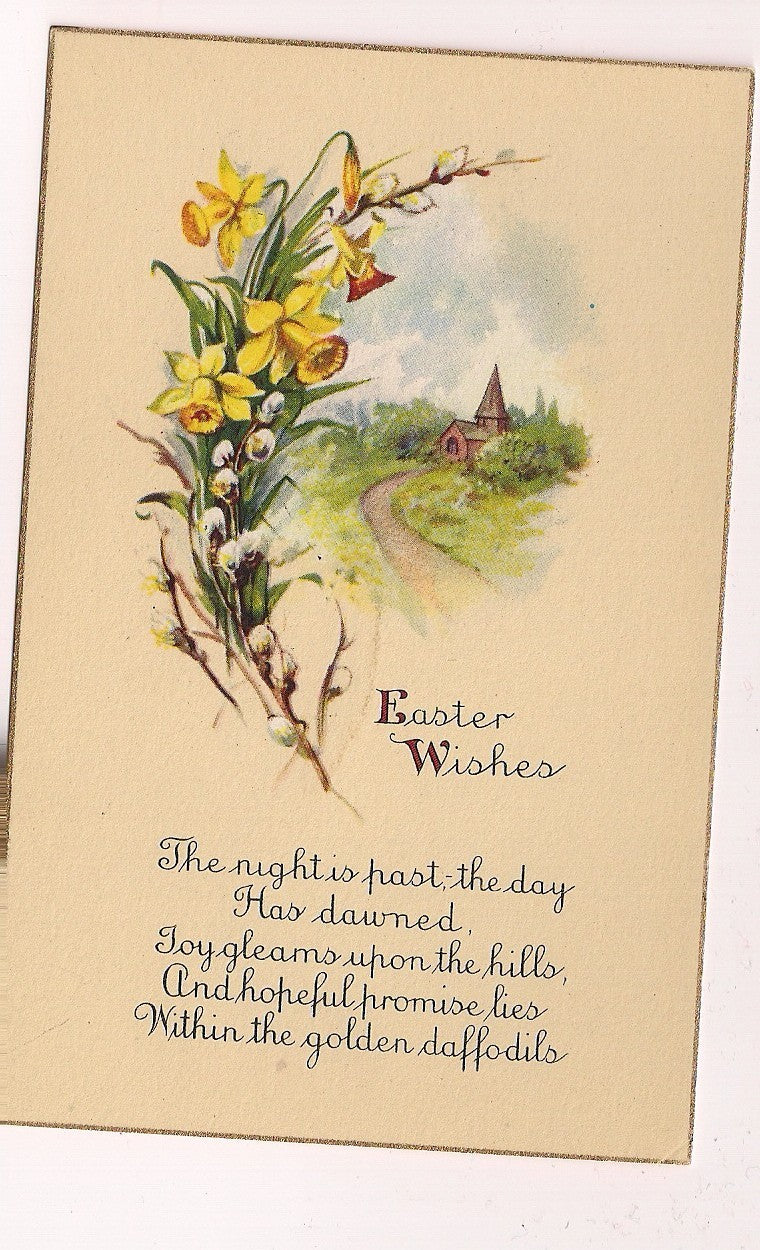 Easter
Wishes
The night is past,-the day
Has dawned,
Joy gleams upon the hills,
And hopeful promise lies
Within the golden daffodils